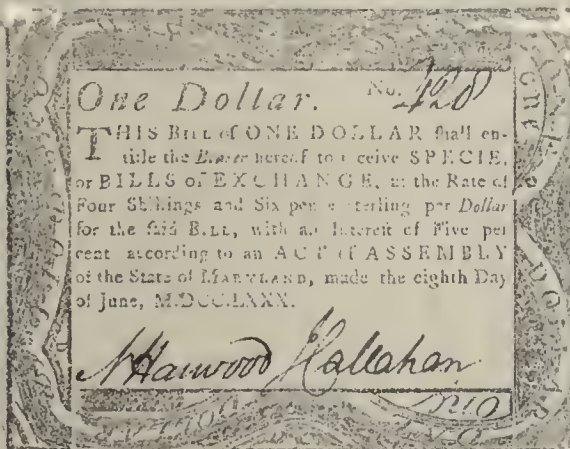 One Dollar. No. 428
THIS BILL of ONE DOLLAR shall en-
title the Bearer hereof to receive SPECIE,
or BILLS of EXCHANGE, at the Rate of
Four Shillings and Six pence sterling per Dollar
for the said BILL, with an Interest of Five per
cent according to an ACT of ASSEMBLY
of the State of MARYLAND, made the eighth Day
of June, M.DCC.LXXX.
N Harwood J Callahan